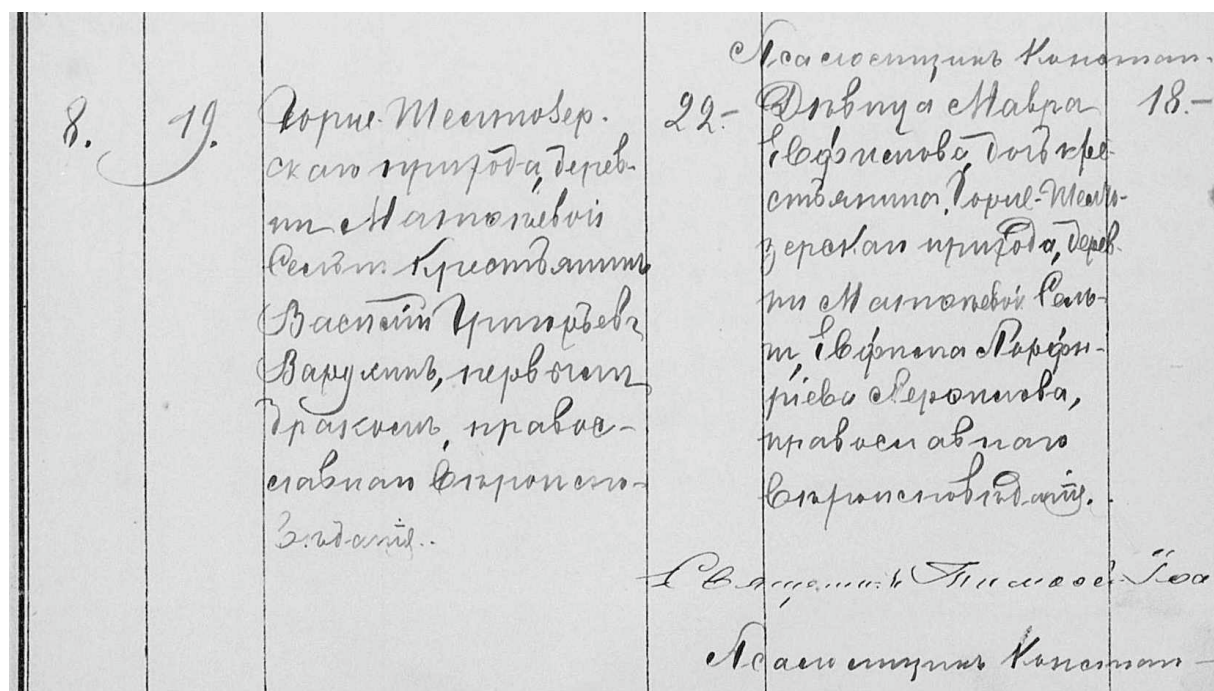 Псаломщикъ Констан-
8. 19. Горне-Шелтозер- 22.- Дѣвица Мавра 18.-
скаго прихода, дерев-
ни Матвѣевой
Сельги крестьянинъ
Василій Григорьевъ
первымъ
бракомъ, правос-
лавнаго вѣроиспо-
вѣданія.
Евфимова, дочь кре-
стьянина, Горне-Шелто-
зерскаго прихода, дерев-
ни Матвѣевой Сель-
ги, Евфима Порфи-
ріева
православнаго
вѣроисповѣданія.
Священникъ Тимофей Іоа
Псаломщикъ Констан-